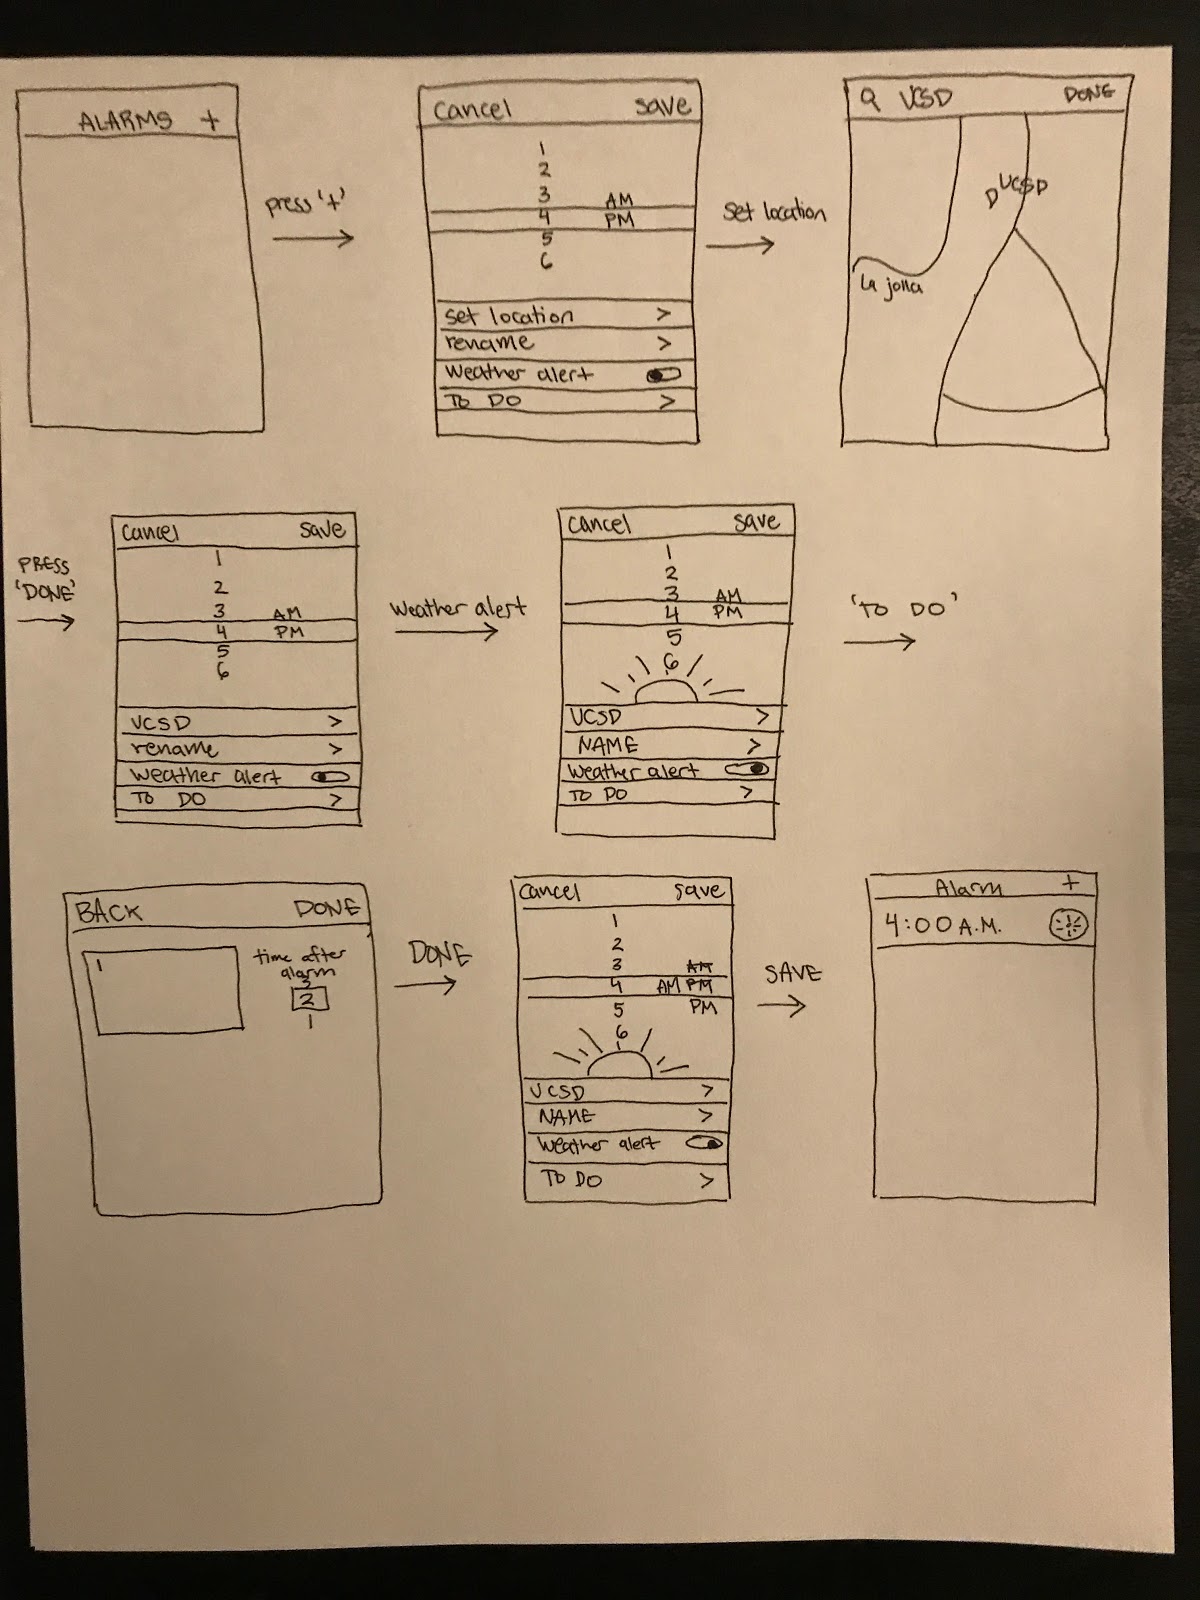 ALARMS +
press '+'
Cancel save
1
2
3 AM
4 PM
5
6
set location >
rename >
Weather alert
To DO >
set location
UCSD DONE
UCSD
La jolla
PRESS
'DONE'
Cancel save
1
2
3 AM
4 PM
5
6
UCSD >
rename >
weather alert
To DO >
Weather alert
Cancel save
1
2
3 AM
4 PM
5
6
UCSD >
NAME >
Weather alert
To DO >
'TO DO'
BACK DONE
1
time after
alarm
3
2
1
DONE
Cancel save
1
2
3 AM
4 AM PM
5 PM
6
UCSD >
NAME >
Weather alert
To DO >
SAVE
Alarm +
4:00 A.M.